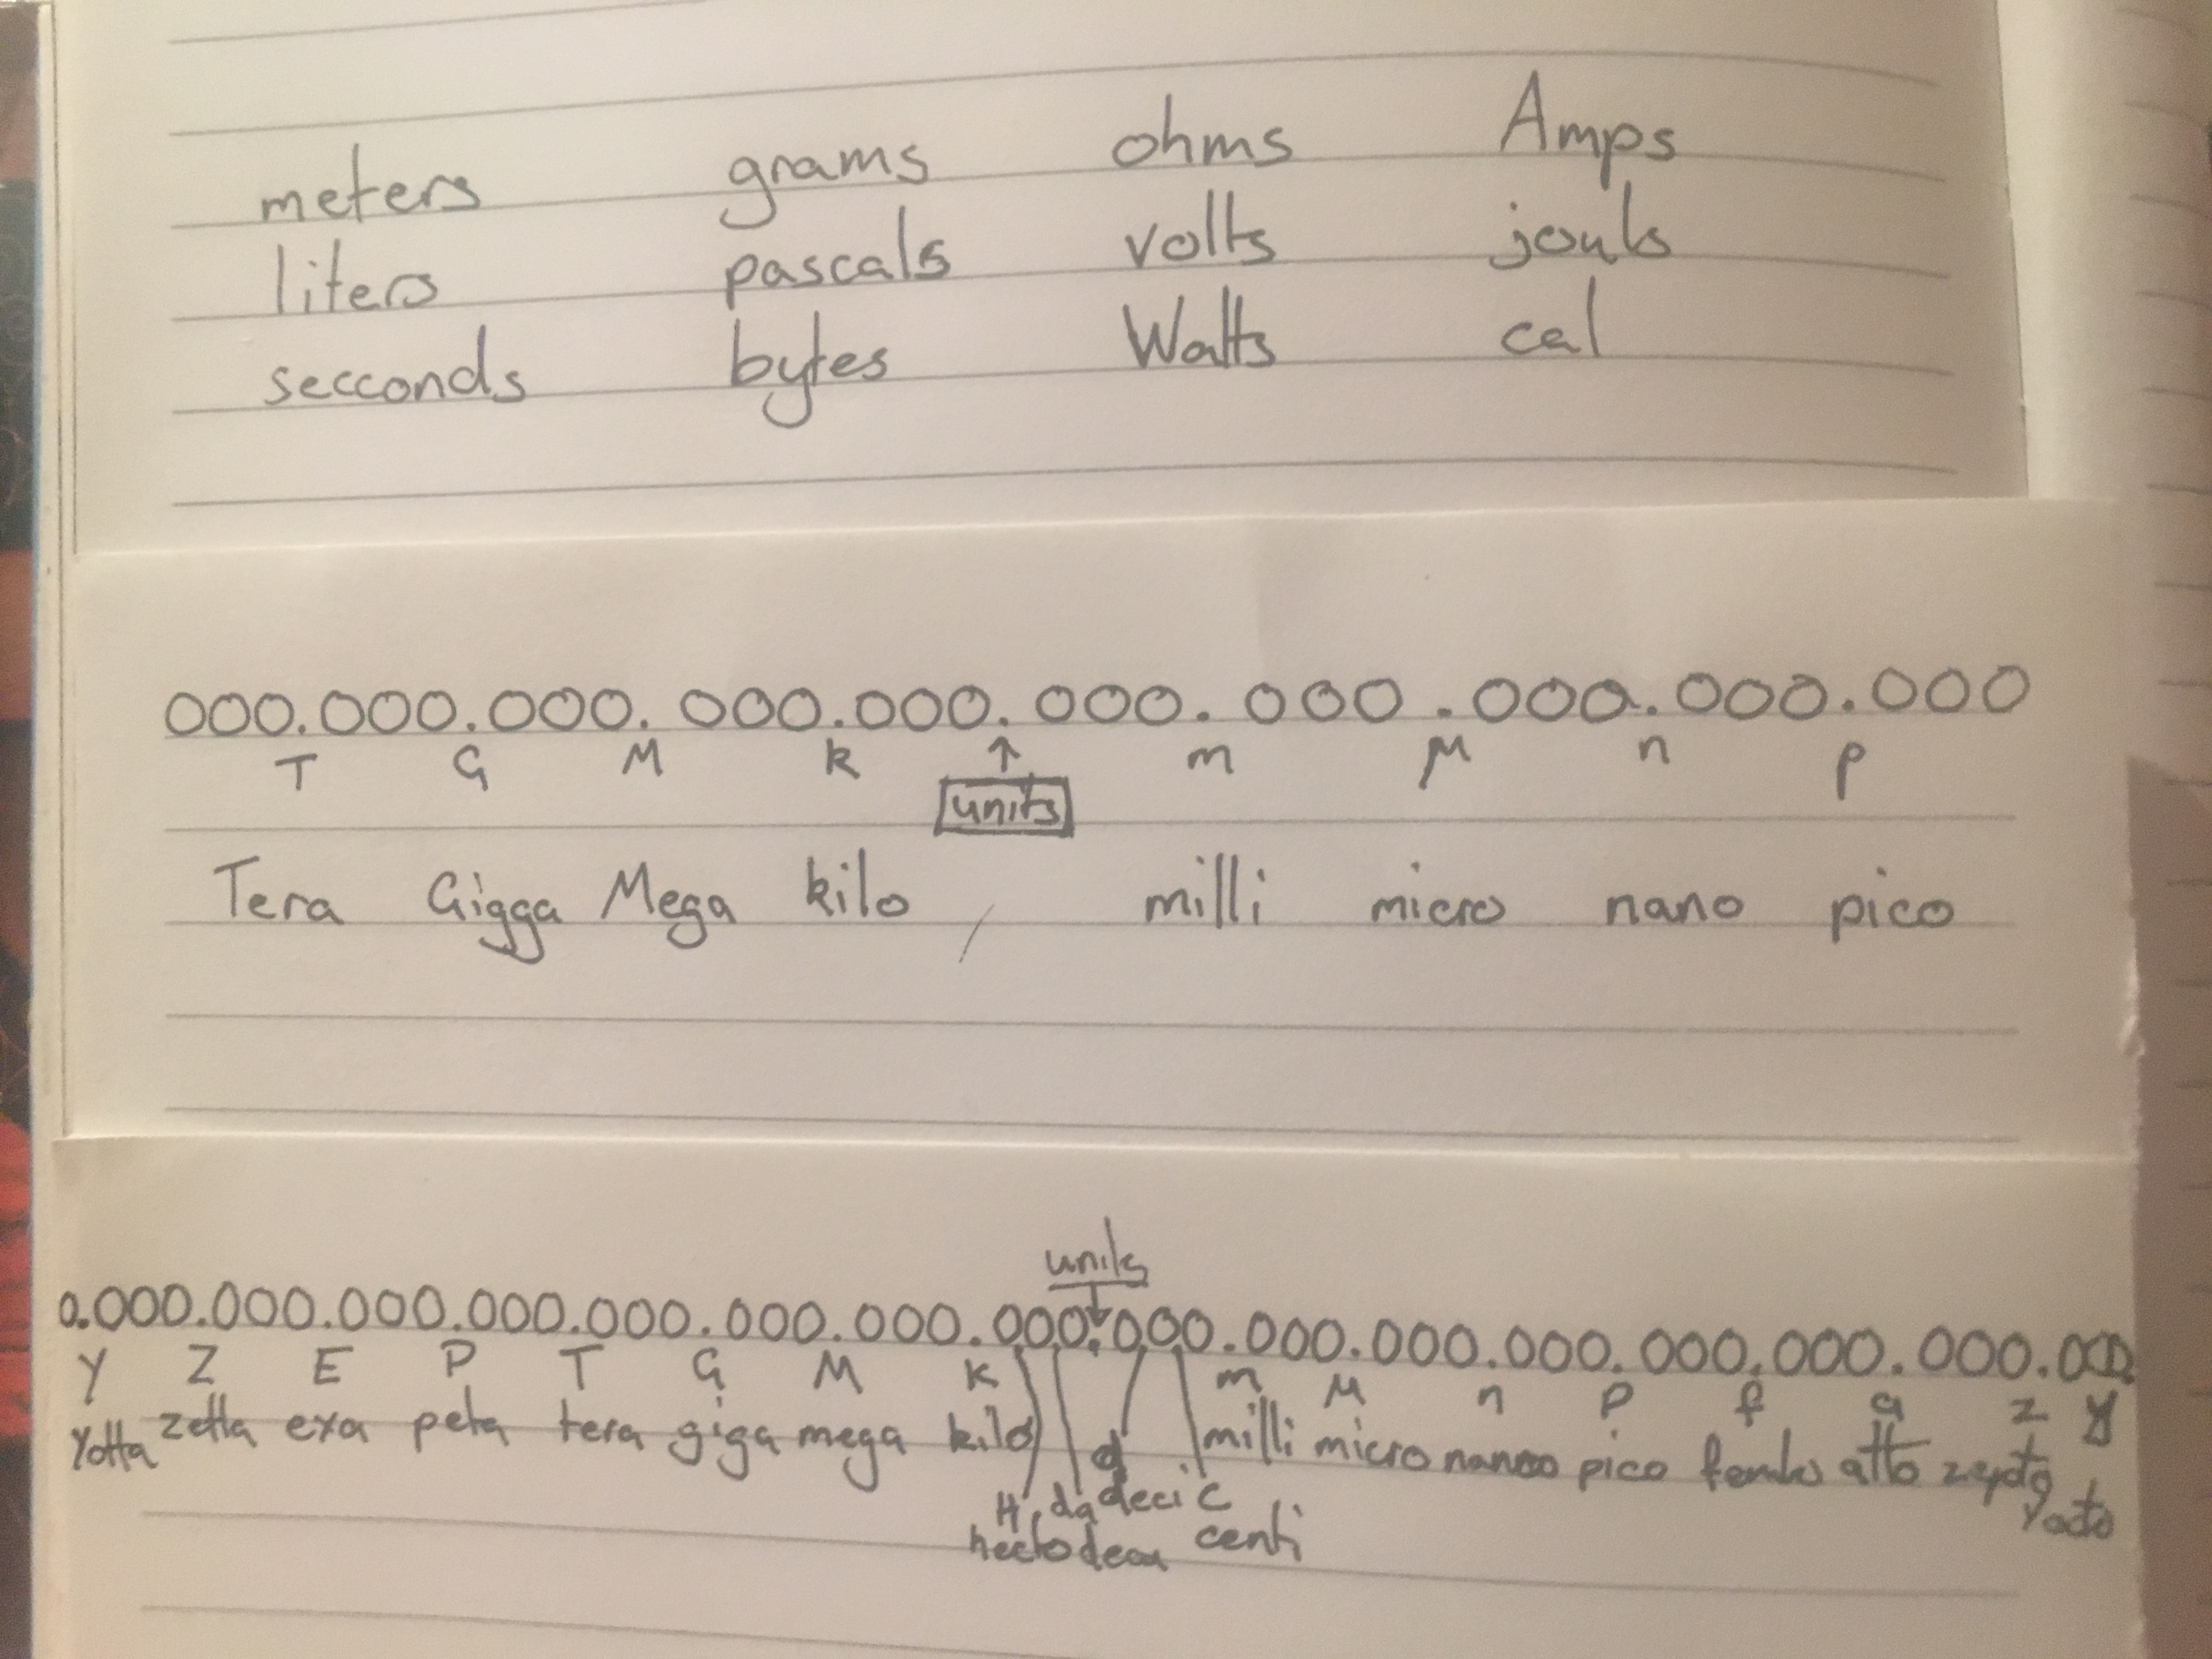 meters grams ohms Amps
liters pascals volts jouls
secconds bytes Watts cal
000.000.000.000.000.000.000.000.000.000
T G M k ↑ m μ n p
units
Tera Gigga Mega kilo , milli micro nano pico
units
0.000.000.000.000.000.000.000.000.000.000.000.000.000.000.000.000
Y Z E P T G M K m μ n p f a z y
Yotta zetta exa peta tera giga mega kilo milli micro nano pico femto atto zepto yocto
H da d deci c
hecto deca centi